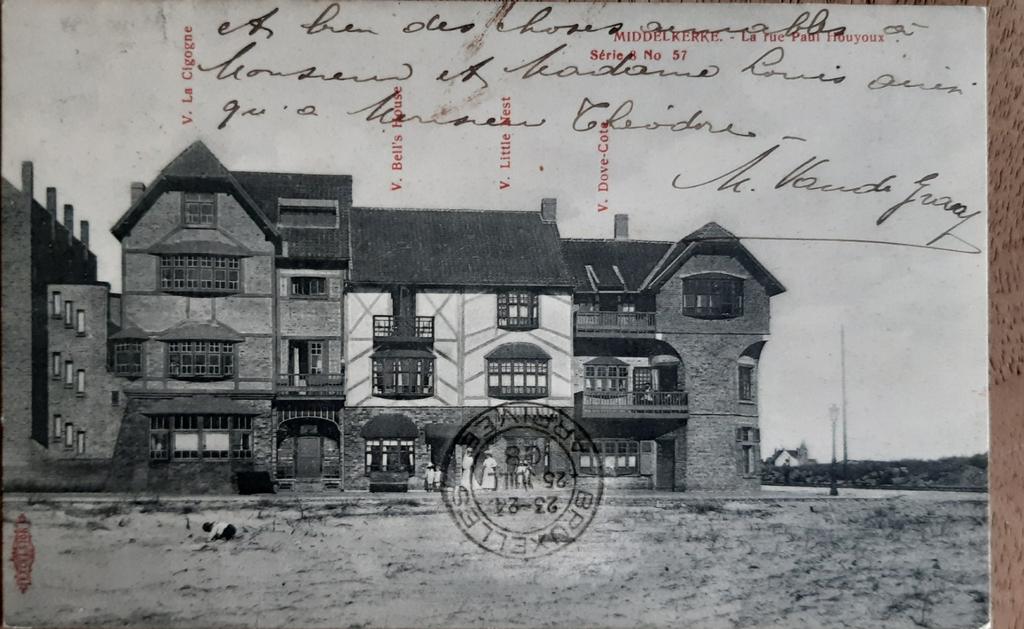 et bien des choses aimables à
MIDDELKERKE. - La rue Paul Houyoux
Série 8 No 57
Monsieur et Madame Louis ainsi
qu'a Monsieur Théodore -
M. Vande
V. La Cigogne
V. Bell's House
V. Little Nest
V. Dove-Cote
BRUXELLES
ARRIVÉE
23-24
25 JUIL